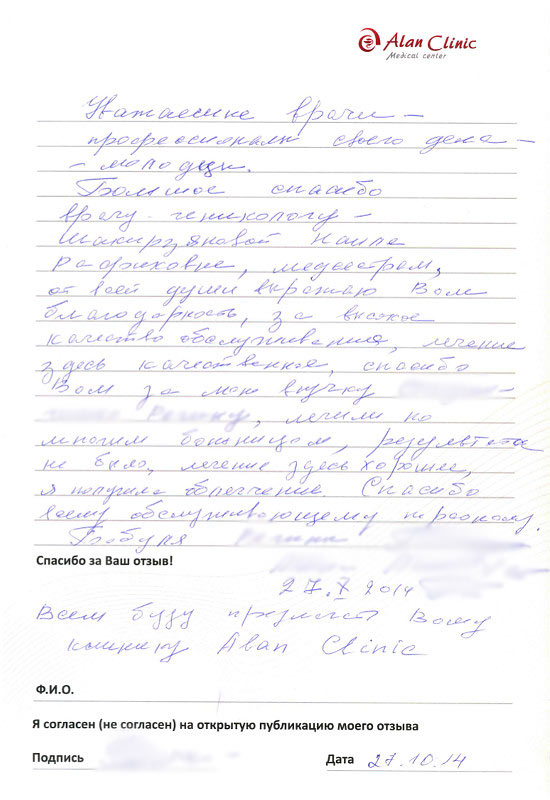 Alan Clinic
Medical center
Уважаемые врачи –
профессионалы своего дела –
– молодцы.
Большое спасибо
врачу-гинекологу –
Шакирзяновой Наиле
Рафиковне, медсестрам,
от всей души выражаю Вам
благодарность, за высокое
качество обслуживания, лечение
здесь качественное, спасибо
Вам за мою внучку
лечили по
многим больницам, результата
не было, лечение здесь хорошее,
я получила облегчение. Спасибо
всему обслуживающему персоналу.
Бабуля
Спасибо за Ваш отзыв!
27.X 2014
Всем буду Вашу
клинику Alan Clinic
Ф.И.О.
Я согласен (не согласен) на открытую публикацию моего отзыва
Подпись Дата 27.10.14